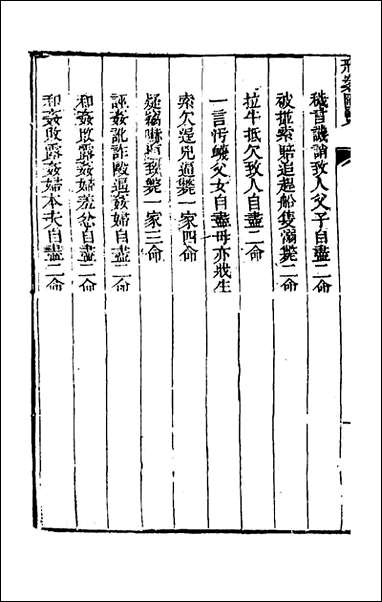 刑案匯覽
穢言譏誚致人父子自盡二命
被拖索賠追趕船隻溺斃二命
拉牛抵欠致人自盡二命
一言污衊父女自盡母亦戕生
索欠逞兇逼斃一家四命
疑竊嚇逼致斃一家三命
誣姦訛詐毆逼姦婦自盡二命
和姦敗露姦婦羞忿自盡二命
和姦敗露姦婦本夫自盡二命